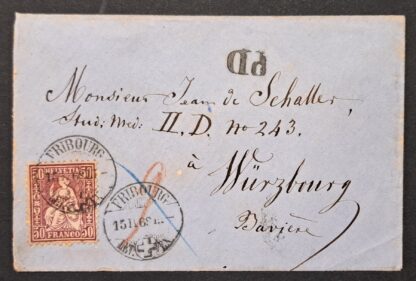 PD
Monsieur Jean de Schaller,
Stud: Med: II, D. No 243.
à
Würzbourg
Bavière
FRIBOURG
50 HELVETIA 50
50 FRANCO 50
FRIBOURG